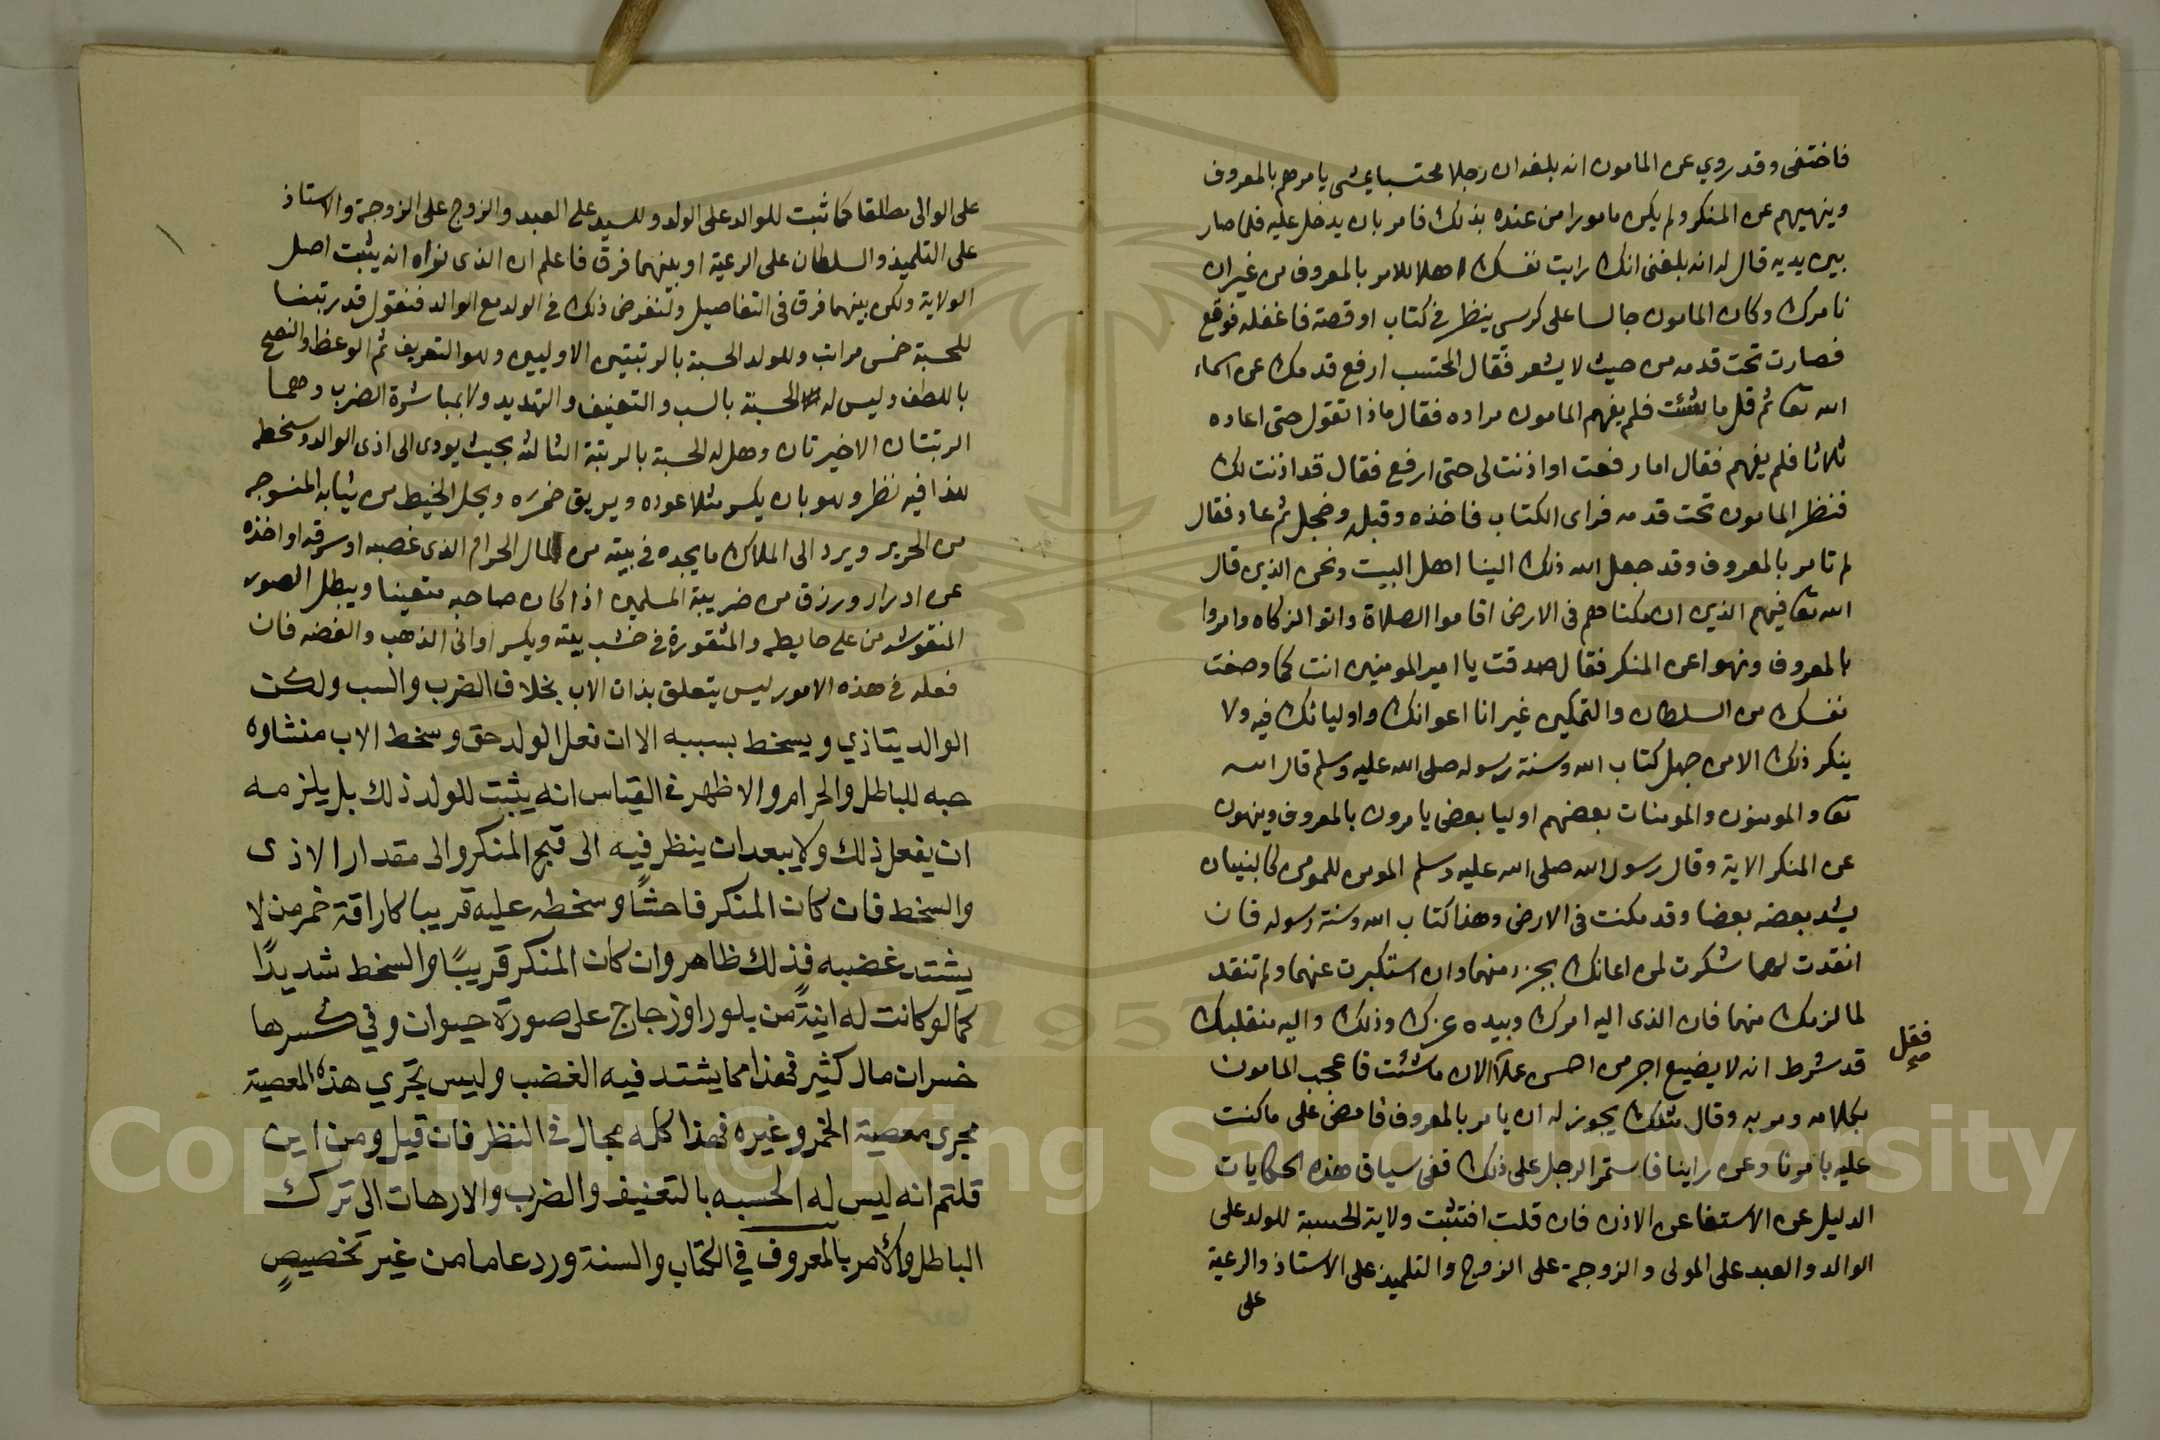 فاختفى وقد روي عن المامون انه بلغه ان رجلا محتسبا يمشى يامرهم بالمعروف
وينهيهم عن المنكر ولم يكن مامورا من عنده بذلك فامر بان يدخل عليه فلما صار
بين يديه قال له انه بلغنى انك رايت نفسك اهلا للامر بالمعروف من غير ان
نامرك وكان المامون جالسا على كرسي ينظر في كتاب او قصة فاغفله فوقع
فصارت تحت قدمه من حيث لا يشعر فقال المحتسب ارفع قدمك عن اسماء
الله تعا ثم قل ما شئت فلم يفهم المامون مراده فقال ماذا تقول حتى اعاده
ثلاثا فلم يفهم فقال اما رفعت او اذنت لى حتى ارفع فقال قد اذنت لك
فنظر المامون تحت قدمه فراى الكتاب فاخذه وقبله وخجل ثم عاد فقال
لم تامر بالمعروف وقد جعل الله ذلك الينا اهل البيت ونحن الذين قال
الله تعا فيهم الذين ان مكناهم فى الارض اقاموا الصلاة واتو الزكاه وامروا
بالمعروف ونهوا عن المنكر فقال صدقت يا امير المومنين انت كما وصفت
نفسك من السلطان والتمكين غير انا اعوانك واوليائك فيه ولا
ينكر ذلك الا من جهل كتاب الله وسنة رسوله صلى الله عليه وسلم قال الله
تعا والمومنون والمومنات بعضهم اوليا بعض يامرون بالمعروف وينهون
عن المنكر الاية وقال رسول الله صلى الله عليه وسلم المومن للمومن كالبنيان
يشد بعضه بعضا وقد مكنت فى الارض وهذا كتاب الله وسنة رسوله فان
انقدت لهما شكرت لمن اعانك بحرمتهما وان استكبرت عنهما ولم تنقد
لما لزمك منهما فان الذى اليه امرك وبيده عزك وذلك واليه منقلبك
قد شرط انه لا يضيع اجر من احسن عملا الان ما شئت فاعجب المامون
فقل
صح
بكلامه وسر به وقال مثلك يجوز له ان يامر بالمعروف فامض على ما كنت
عليه بامرنا وعن راينا فاستمر الرجل على ذلك ففى سياق هذه الحكايات
الدليل عن الاستغنا عن الاذن فان قلت افتثبت ولاية الحسبة للولد على
الوالد والعبد على المولى والزوجة على الزوج والتلميذ على الاستاذ والرعية
على
على الوالى مطلقا كما ثبت للوالد على الولد وللسيد على العبد والزوج على الزوجة والاستاذ
على التلميذ والسلطان على الرعية او بينهما فرق فاعلم ان الذى نراه انه يثبت اصل
الولاية ولكن بينهما فرق فى التفاصيل ولنفرض ذلك فى الولد مع الوالد فنقول قد رتبنا
للحسبة خمس مراتب وللولد الحسبة بالرتبتين الاوليين وهو التعريف ثم الوعظ والنصح
باللطف وليس له الحسبة بالسب والتعنيف والتهديد ولا بمباشرة الضرب وهما
الرتبتان الاخيرتان وهل له الحسبة بالرتبة الثالثة بحيث يودى الى اذى الوالد وسخطه
هذا فيه نظر وهو بان يكسر مثلا عوده ويريق خمره ويحل الخيط من ثيابه المنسوجه
من الحرير ويرد الى الملاك ما يجده فى بيته من المال الحرام الذى غصبه او سرقه او اخذه
عن ادرار ورزق من ضريبة المسلمين اذا كان صاحبه متعينا ويبطل الصور
المنقوشه على حايطه والمنقورة فى خشب بيته ويكسر اوانى الذهب والفضه فان
فعله فى هذه الامور ليس يتعلق بذات الاب بخلاف الضرب والسب ولكن
الوالد يتاذي ويسخط بسببه الا ان فعل الولد حق وسخط الاب منشاوه
حبه للباطل والحرام والاظهر فى القياس انه يثبت للولد ذلك بل يلزمه
ان يفعل ذلك ولا يبعد ان ينظر فيه الى قبح المنكر والى مقدار الاذى
والسخط فان كان المنكر فاحشًا وسخطه عليه قريبا كاراقة خمر من لا
يشتد غضبه فذلك ظاهر وان كان المنكر قريبًا والسخط شديدًا
كما لو كانت له انيةً من بلور او زجاج على صورة حيوان وفي كسرها
خسران مال كثير فهذا مما يشتد فيه الغضب وليس تجري هذه المعصية
مجرى معصية الخمر وغيره فهذا كله مجال فى النظر فان قيل ومن اين
قلتم انه ليس له الحسبه بالتعنيف والضرب والارهاق الى ترك
الباطل والامر بالمعروف في الكتاب والسنة ورد عاما من غير تخصيصٍ
Copyright © King Saud University
1957